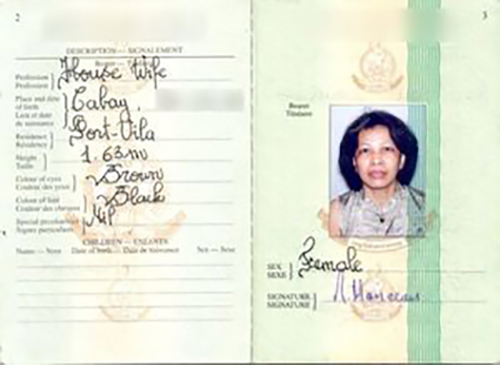 2
DESCRIPTION — SIGNALEMENT
Bearer — Titulaire
Profession
Profession } House Wife
Place and date of birth
Lieu et date de naissance } Cabay,
Residence
Résidence } Port-Vila
Height
Taille } 1.63m
Colour of eyes
Couleur des yeux } Brown
Colour of hair
Couleur des cheveux } Black
Special peculiarities
Signes particuliers } Nil
CHILDREN — ENFANTS
Name — Nom Date of birth — Date de naissance Sex — Sexe
3
Bearer
Titulaire
SEX
SEXE } Female
SIGNATURE
SIGNATURE }